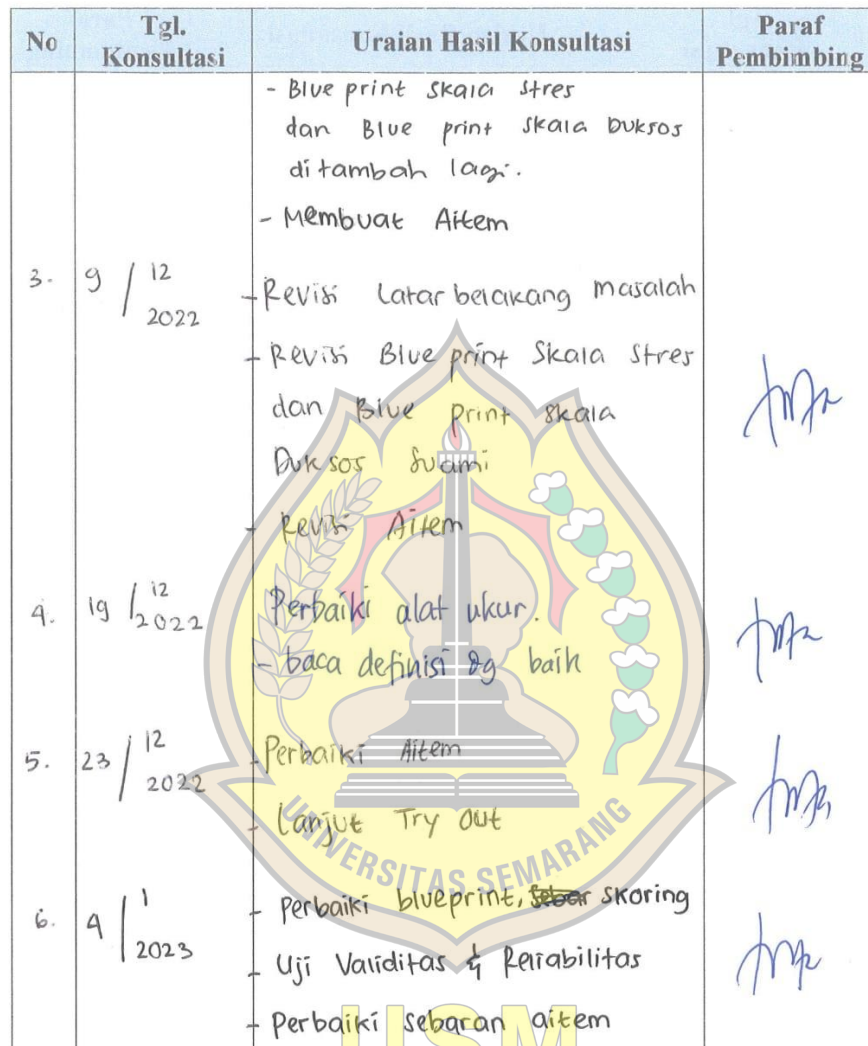 No Tgl. Konsultasi Uraian Hasil Konsultasi Paraf Pembimbing
- Blue print skala stres
dan Blue print skala duksos
ditambah lagi.
- Membuat Aitem
3. 9 / 12 2022 - Revisi Latar belakang masalah
- Revisi Blue print Skala Stres
dan Blue print skala
Duksos Suami
- Revisi Aitem
4. 19 / 12 2022 Perbaiki alat ukur.
- baca definisi dg baik
5. 23 / 12 2022 - Perbaiki Aitem
- Lanjut Try out
UNIVERSITAS SEMARANG
6. 4 / 1 2023 - Perbaiki blueprint, sebar skoring
- Uji Validitas & Reliabilitas
- Perbaiki sebaran aitem
USM